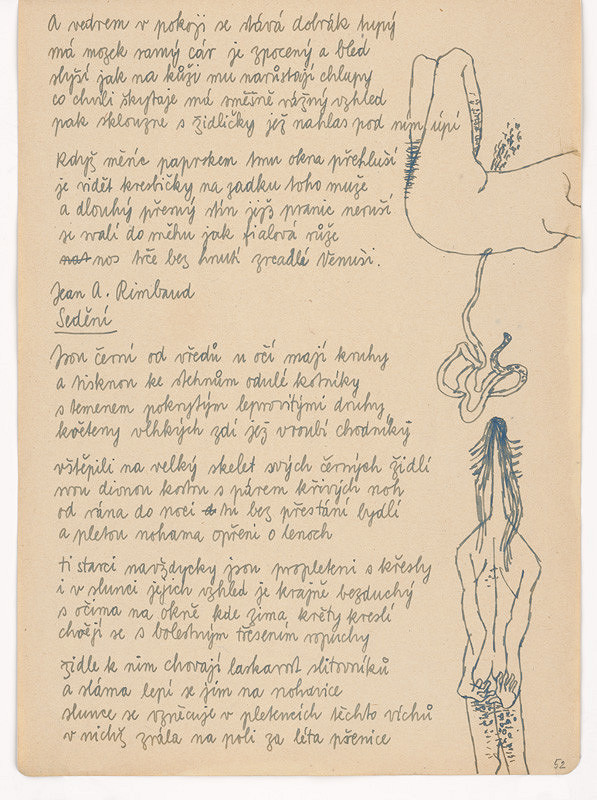 A vedrem v pokoji se stává dobrák tupý
má mozek samý cár je zpocený a bled
slyší jak na kůži mu narůstají chlupy
co chvíli škytaje má směšně vážný vzhled
pak sklouzne s židličky jež nahlas pod ním úpí
Když měsíc paprskem tmu okna přehluší
je vidět kresbičky na zadku toho muže
a dlouhý přesný stín jejž pranic neruší
se valí do sněhu jak fialová růže
nos trčí bez hnutí zrcadle Venuši.
Jean A. Rimbaud
Sedění
Jsou černí od vředů u očí mají kruhy
a tisknou ke stehnům odulé kotníky
s temenem pokrytým leprovitými druhy
květeny vlhkých zdí jež vroubí chodníky
vštěpili na velký skelet svých černých židlí
svou divnou kostru s párem křivých noh
od rána do noci tu bez přestání bydlí
a pletou nohama opřeni o lenoch
ti starci navždycky jsou propleteni s křesly
i v slunci jejich vzhled je krajně bezduchý
s očima na okně kde zima květy kreslí
chvějí se s bolestným třesením ropuchy
židle k nim chovají laskavost slitovníků
a sláma lepí se jim na nohavice
slunce se vzněcuje v pletencích těchto víchů
v nichž zrála na poli za léta pšenice
52